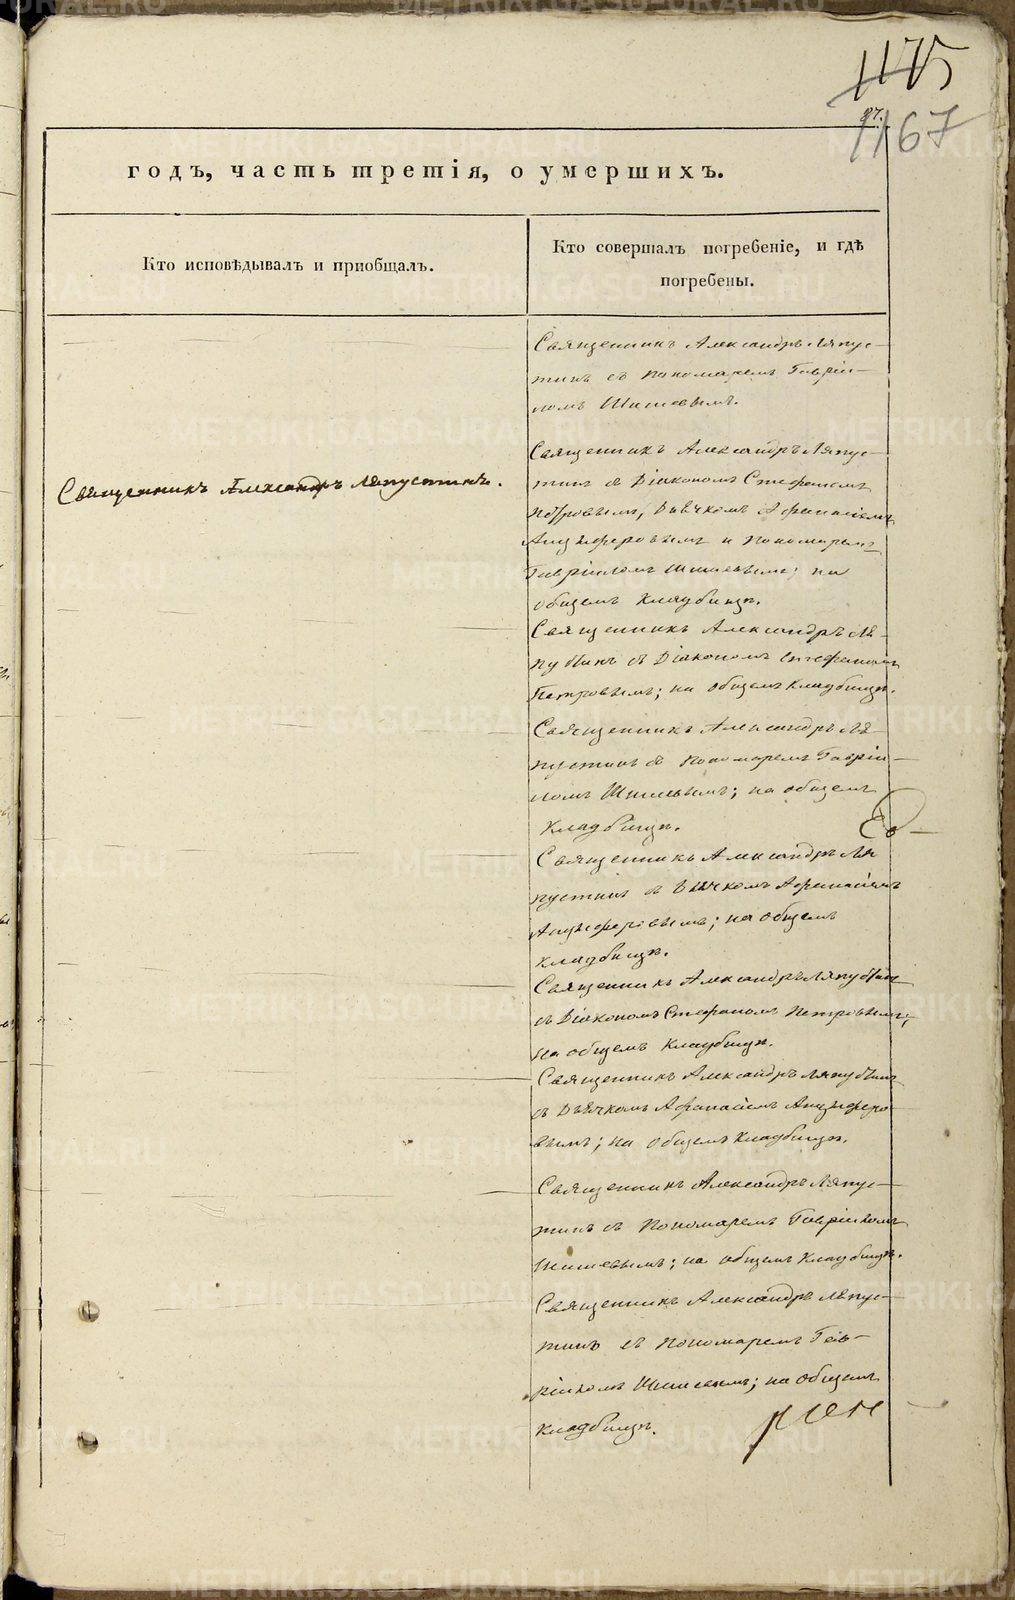 1175
87.
1167
годъ, часть третія, о умершихъ.
Кто исповѣдывалъ и пріобщалъ.
Кто совершалъ погребеніе, и гдѣ
погребены.
Священникъ Александръ Ляпус-
тинъ съ пономаремъ Гаврі-
ломъ Шишевымъ.
Священникъ Александръ Ляпустинъ.
Священникъ Александръ Ляпус-
тинъ съ Діакономъ Стефаномъ
Петровымъ, Дьячкомъ Афанасіемъ
Анциферовымъ и пономаремъ
Гавріиломъ Шишевымъ; на
общемъ кладбищѣ.
Священникъ Александръ Ля-
пустинъ съ Діакономъ Стефаномъ
Петровымъ; на общемъ кладбищѣ.
Священникъ Александръ Ля-
пустинъ съ пономаремъ Гаврі-
ломъ Шишевымъ; на общемъ
кладбищѣ.
Священникъ Александръ Ля
пустинъ съ Дьячкомъ Афанасіемъ
Анциферовымъ; на общемъ
кладбищѣ.
Священникъ Александръ Ляпустинъ
съ Діакономъ Стефаномъ Петровымъ;
на общемъ кладбищѣ.
Священникъ Александръ Ляпустинъ
съ Дьячкомъ Афанасіемъ Анциферо-
вымъ; на общемъ кладбищѣ.
Священникъ Александръ Ляпус-
тинъ съ пономаремъ Гавріиломъ
Шишевымъ; на общемъ кладбищѣ.
Священникъ Александръ Ляпус-
тинъ съ пономаремъ Гав-
ріиломъ Шишевымъ; на общемъ
кладбищѣ.
METRIKI.GASO-URAL.RU